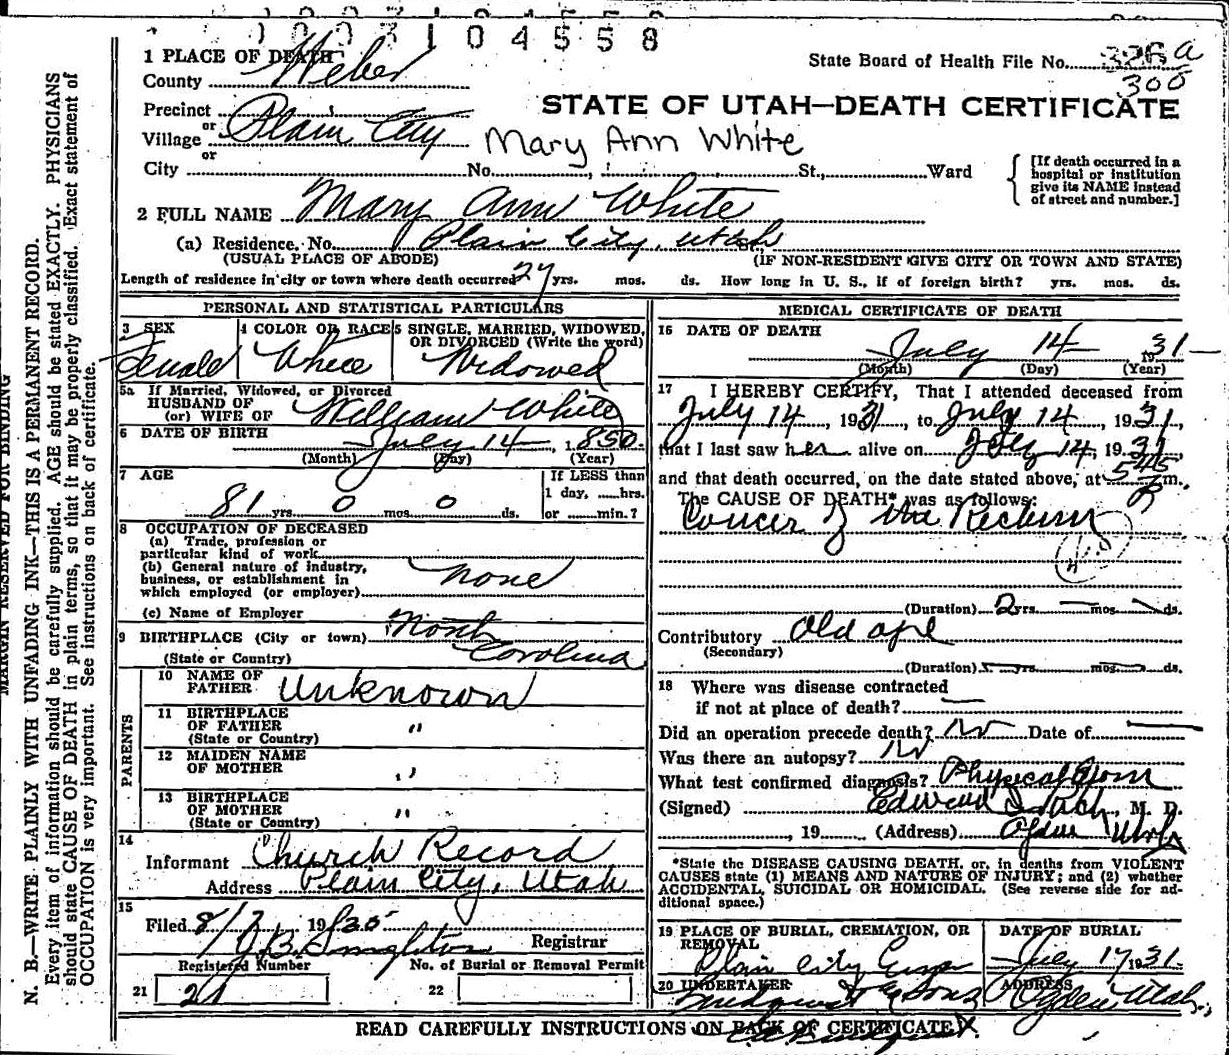 1 0 0 3 1 0 4 5 5 8
1 PLACE OF DEATH
County Weber
State Board of Health File No. 326 a
300
STATE OF UTAH—DEATH CERTIFICATE
Precinct
or
Village Plain City
Mary Ann White
or
City No. St., Ward
[If death occurred in a hospital or institution give its NAME instead of street and number.]
2 FULL NAME Mary Ann White
(a) Residence. No. Plain City, Utah
(USUAL PLACE OF ABODE) (IF NON-RESIDENT GIVE CITY OR TOWN AND STATE)
Length of residence in city or town where death occurred 27 yrs. mos. ds. How long in U. S., if of foreign birth? yrs. mos. ds.
PERSONAL AND STATISTICAL PARTICULARS
3 SEX
Female
4 COLOR OR RACE
White
5 SINGLE, MARRIED, WIDOWED, OR DIVORCED (Write the word)
Widowed
5a If Married, Widowed, or Divorced
HUSBAND OF
(or) WIFE OF William White
6 DATE OF BIRTH July 14, 1850
(Month) (Day) (Year)
7 AGE
81 yrs. 0 mos. 0 ds.
If LESS than
1 day, hrs.
or min.?
8 OCCUPATION OF DECEASED
(a) Trade, profession or
particular kind of work
(b) General nature of industry,
business, or establishment in
which employed (or employer) none
(c) Name of Employer
9 BIRTHPLACE (City or town) North
(State or Country) Carolina
PARENTS
10 NAME OF
FATHER Unknown
11 BIRTHPLACE
OF FATHER "
(State or Country)
12 MAIDEN NAME
OF MOTHER "
13 BIRTHPLACE
OF MOTHER "
(State or Country)
14
Informant Church Record
Address Plain City, Utah
15
Filed 8/
Registrar
Registered Number No. of Burial or Removal Permit
21 21 22
MEDICAL CERTIFICATE OF DEATH
16 DATE OF DEATH
July 14 1931
(Month) (Day) (Year)
17 I HEREBY CERTIFY, That I attended deceased from
July 14, 1931, to July 14, 1931,
that I last saw her alive on July 14, 1931,
and that death occurred, on the date stated above, at 545 P m.
The CAUSE OF DEATH* was as follows:
Cancer of the Rectum
(Duration) 2 yrs. — mos. — ds.
Contributory Old age
(Secondary)
(Duration) yrs. mos. ds.
18 Where was disease contracted
if not at place of death? —
Did an operation precede death? No Date of —
Was there an autopsy? No
What test confirmed diagnosis? Physical Exam
(Signed) Edward , M. D.
, 19 (Address) Ogden Utah
*State the DISEASE CAUSING DEATH, or, in deaths from VIOLENT
CAUSES state (1) MEANS AND NATURE OF INJURY; and (2) whether
ACCIDENTAL, SUICIDAL OR HOMICIDAL. (See reverse side for additional space.)
19 PLACE OF BURIAL, CREMATION, OR
REMOVAL
Plain City
DATE OF BURIAL
July 17 1931.
20 UNDERTAKER
& Sons
ADDRESS
Ogden Utah
READ CAREFULLY INSTRUCTIONS ON BACK OF CERTIFICATE
MARGIN RESERVED FOR BINDING
N. B.—WRITE PLAINLY WITH UNFADING INK—THIS IS A PERMANENT RECORD.
Every item of information should be carefully supplied. AGE should be stated EXACTLY. PHYSICIANS
should state CAUSE OF DEATH in plain terms, so that it may be properly classified. Exact statement of
OCCUPATION is very important. See instructions on back of certificate.